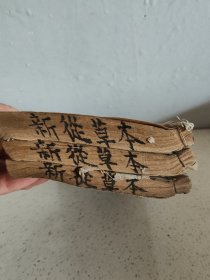 本草從新
本草從新
本草從新